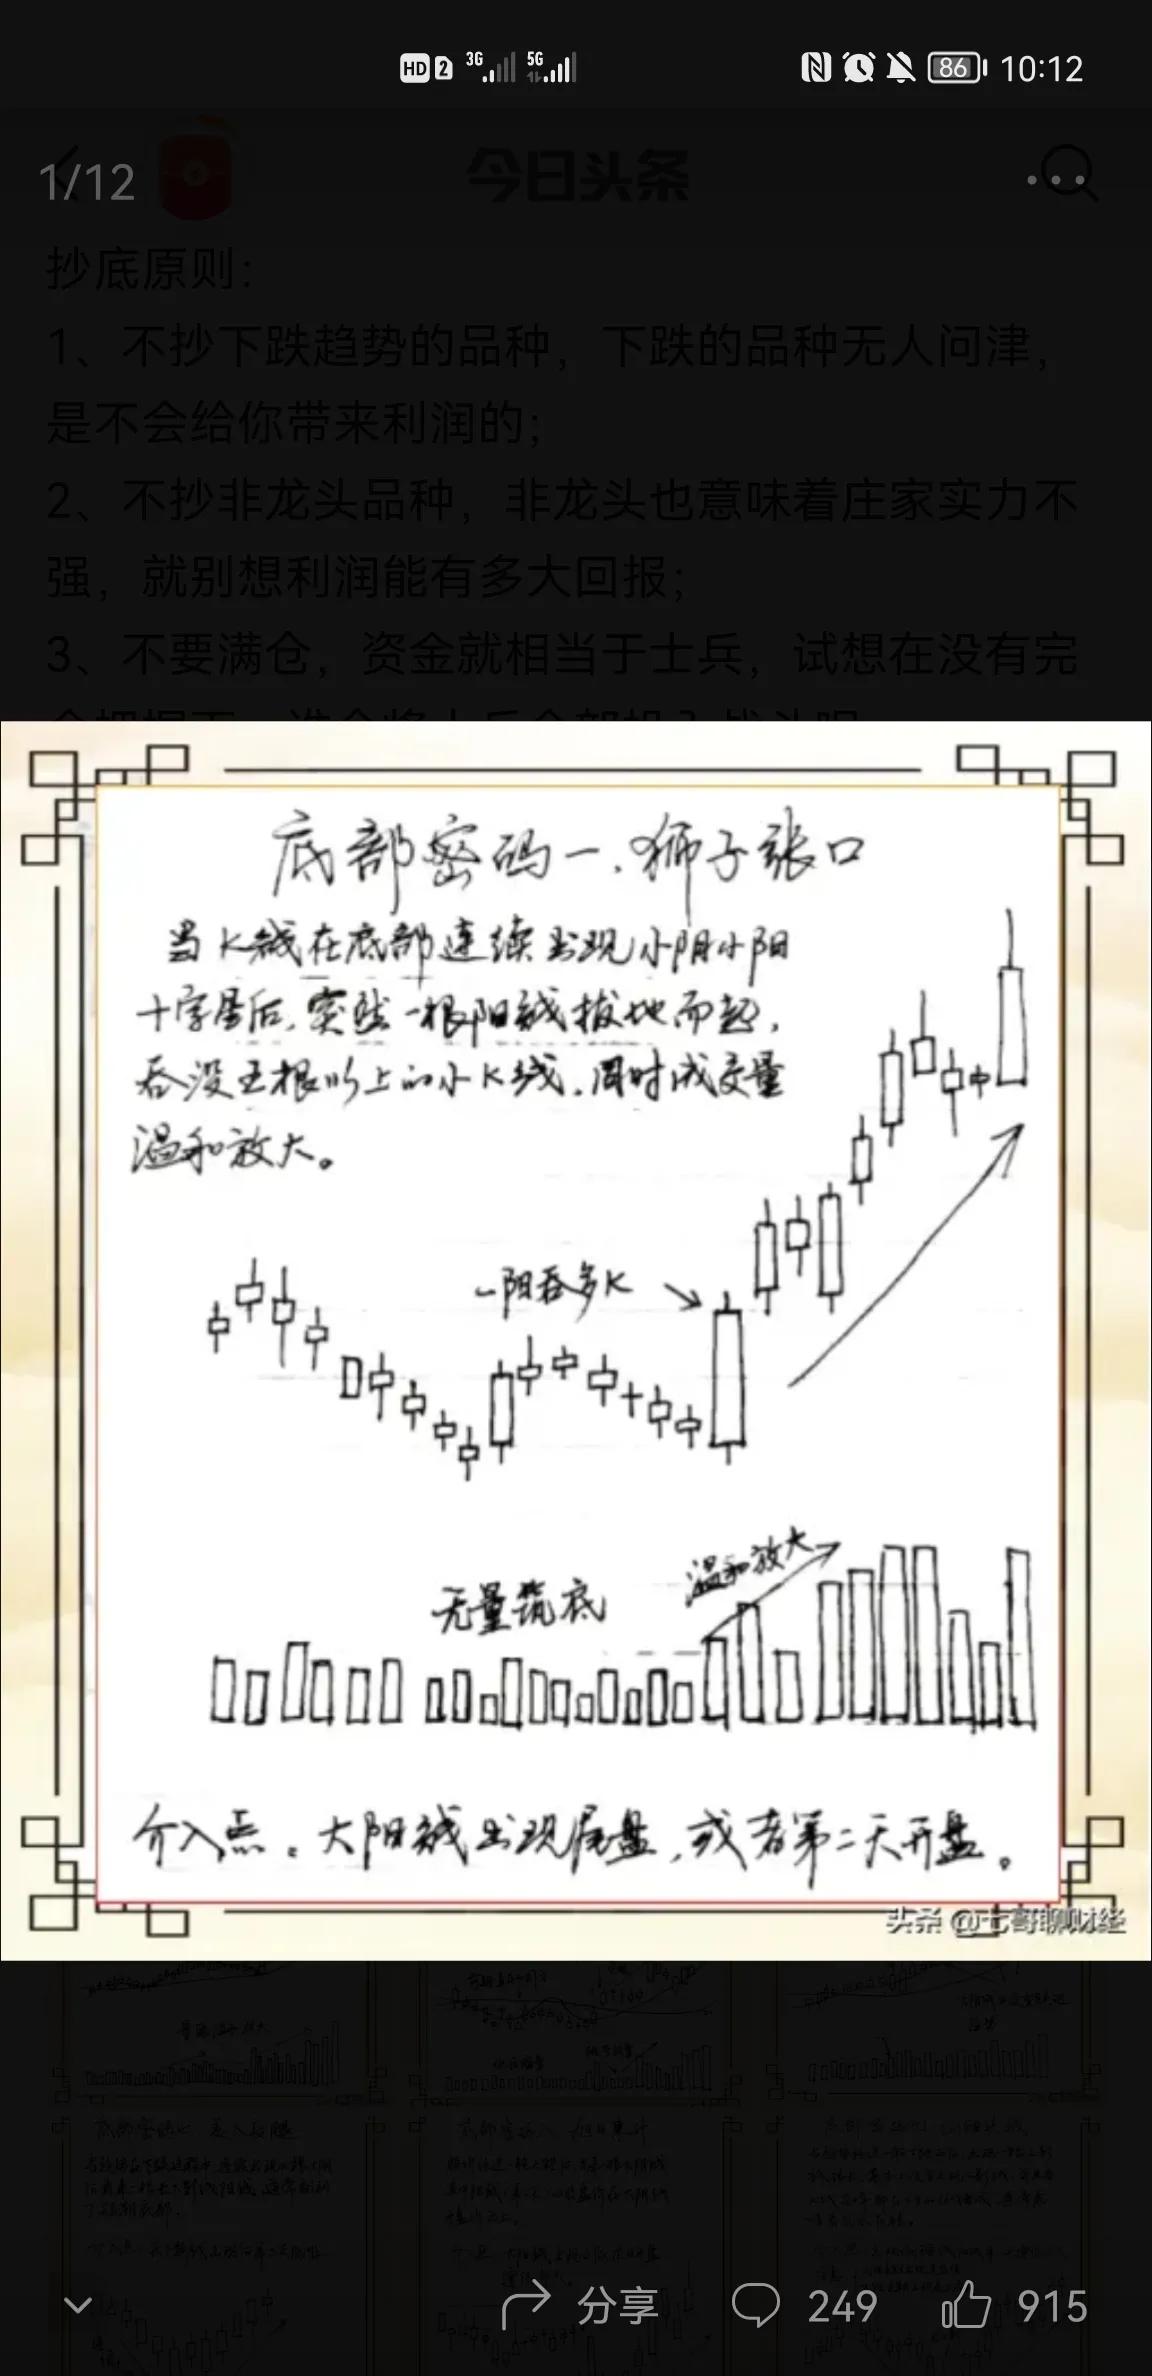 HD 2 3G 5G 86 10:12
1/12
今日头条
抄底原则：
1、不抄下跌趋势的品种，下跌的品种无人问津，
是不会给你带来利润的；
2、不抄非龙头品种，非龙头也意味着庄家实力不
强，就别想利润能有多大回报；
3、不要满仓，资金就相当于士兵，试想在没有完
底部密码一.狮子张口
当K线在底部连续出现小阴小阳
十字星后，突然一根阳线拔地而起，
吞没五根以上的小K线．同时成交量
温和放大。
一阳吞多K
温和放大
无量筑底
介入点：大阳线出现尾盘，或者第二天开盘。
头条 @七哥聊财经
分享
249
915